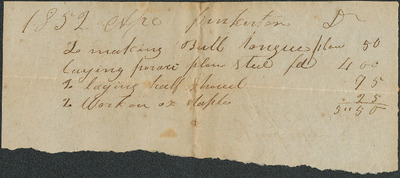 1852 Mr Pinkerton Dr
To making Bull tongue plow 50
laying plow Steel fd 4 00
To laying half shovel 75
To Work on ox staples 25
5"50